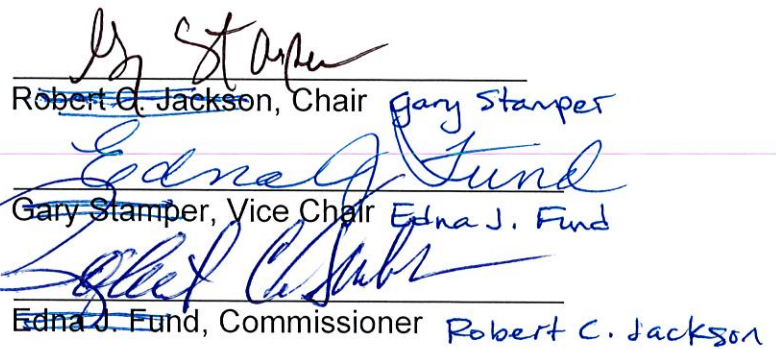 Gary Stamper
Robert C. Jackson, Chair Gary Stamper
Edna J Fund
Gary Stamper, Vice Chair Edna J. Fund
Edna J. Fund, Commissioner Robert C. Jackson